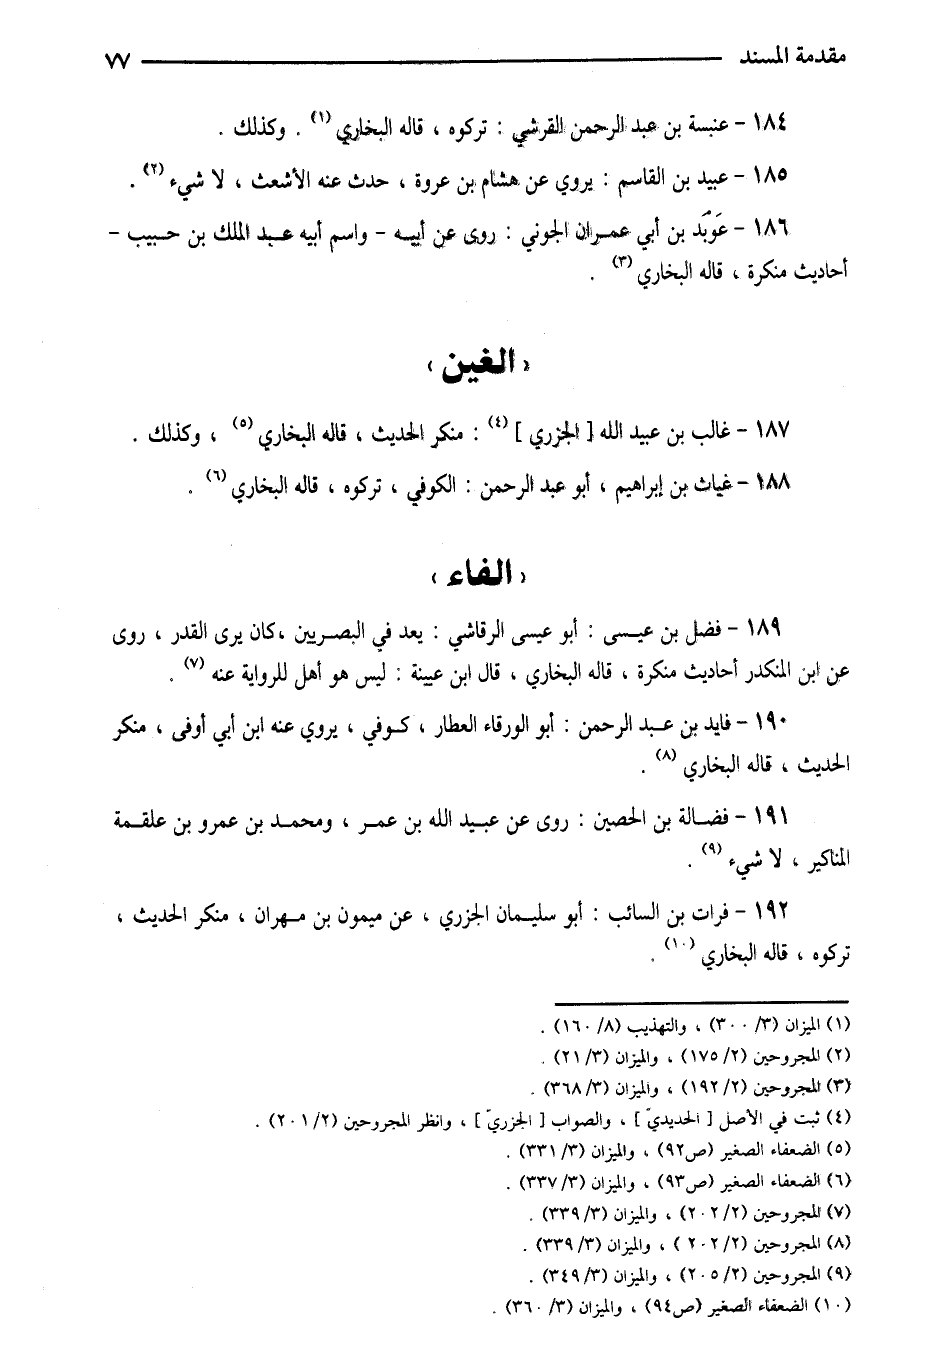 مقدمة المسند ٧٧
١٨٤ - عنبسة بن عبد الرحمن القرشي : تركوه ، قاله البخاري (١) . وكذلك .
١٨٥ - عبيد بن القاسم : يروي عن هشام بن عروة ، حدث عنه الأشعث ، لا شيء (٢) .
١٨٦ - عَوبَد بن أبي عمران الجوني : روى عن أبيه - واسم أبيه عبد الملك بن حبيب -
أحاديث منكرة ، قاله البخاري (٣) .
« الغين »
١٨٧ - غالب بن عبيد الله [ الجزري ] (٤) : منكر الحديث ، قاله البخاري (٥) ، وكذلك .
١٨٨ - غياث بن إبراهيم ، أبو عبد الرحمن : الكوفي ، تركوه ، قاله البخاري (٦) .
« الفاء »
١٨٩ - فضل بن عيسى : أبو عيسى الرقاشي : يعد في البصريين ،كان يرى القدر ، روى
عن ابن المنكدر أحاديث منكرة ، قاله البخاري ، قال ابن عيينة : ليس هو أهل للرواية عنه (٧) .
١٩٠ - فايد بن عبد الرحمن : أبو الورقاء العطار ، كوفي ، يروي عنه ابن أبي أوفى ، منكر
الحديث ، قاله البخاري (٨) .
١٩١ - فضالة بن الحصين : روى عن عبيد الله بن عمر ، ومحمد بن عمرو بن علقمة
المناكير ، لا شيء (٩) .
١٩٢ - فرات بن السائب : أبو سليمان الجزري ، عن ميمون بن مهران ، منكر الحديث ،
تركوه ، قاله البخاري (١٠) .
(١) الميزان (٣/ ٣٠٠) ، والتهذيب (٨/ ١٦٠) .
(٢) المجروحين (٢/ ١٧٥) ، والميزان (٣/ ٢١) .
(٣) المجروحين (٢/ ١٩٢) ، والميزان (٣/ ٣٦٨) .
(٤) ثبت في الأصل [ الحديديّ ] ، والصواب [ الجزريّ ] ، وانظر المجروحين (٢/ ٢٠١) .
(٥) الضعفاء الصغير (ص٩٢) ، والميزان (٣/ ٣٣١) .
(٦) الضعفاء الصغير (ص٩٣) ، والميزان (٣/ ٣٣٧) .
(٧) المجروحين (٢/ ٢٠٢) ، والميزان (٣/ ٣٣٩) .
(٨) المجروحين (٢/ ٢٠٢ ) ، والميزان (٣/ ٣٣٩) .
(٩) المجروحين (٢/ ٢٠٥) ، والميزان (٣/ ٣٤٩) .
(١٠) الضعفاء الصغير (ص٩٤) ، والميزان (٣/ ٣٦٠) .